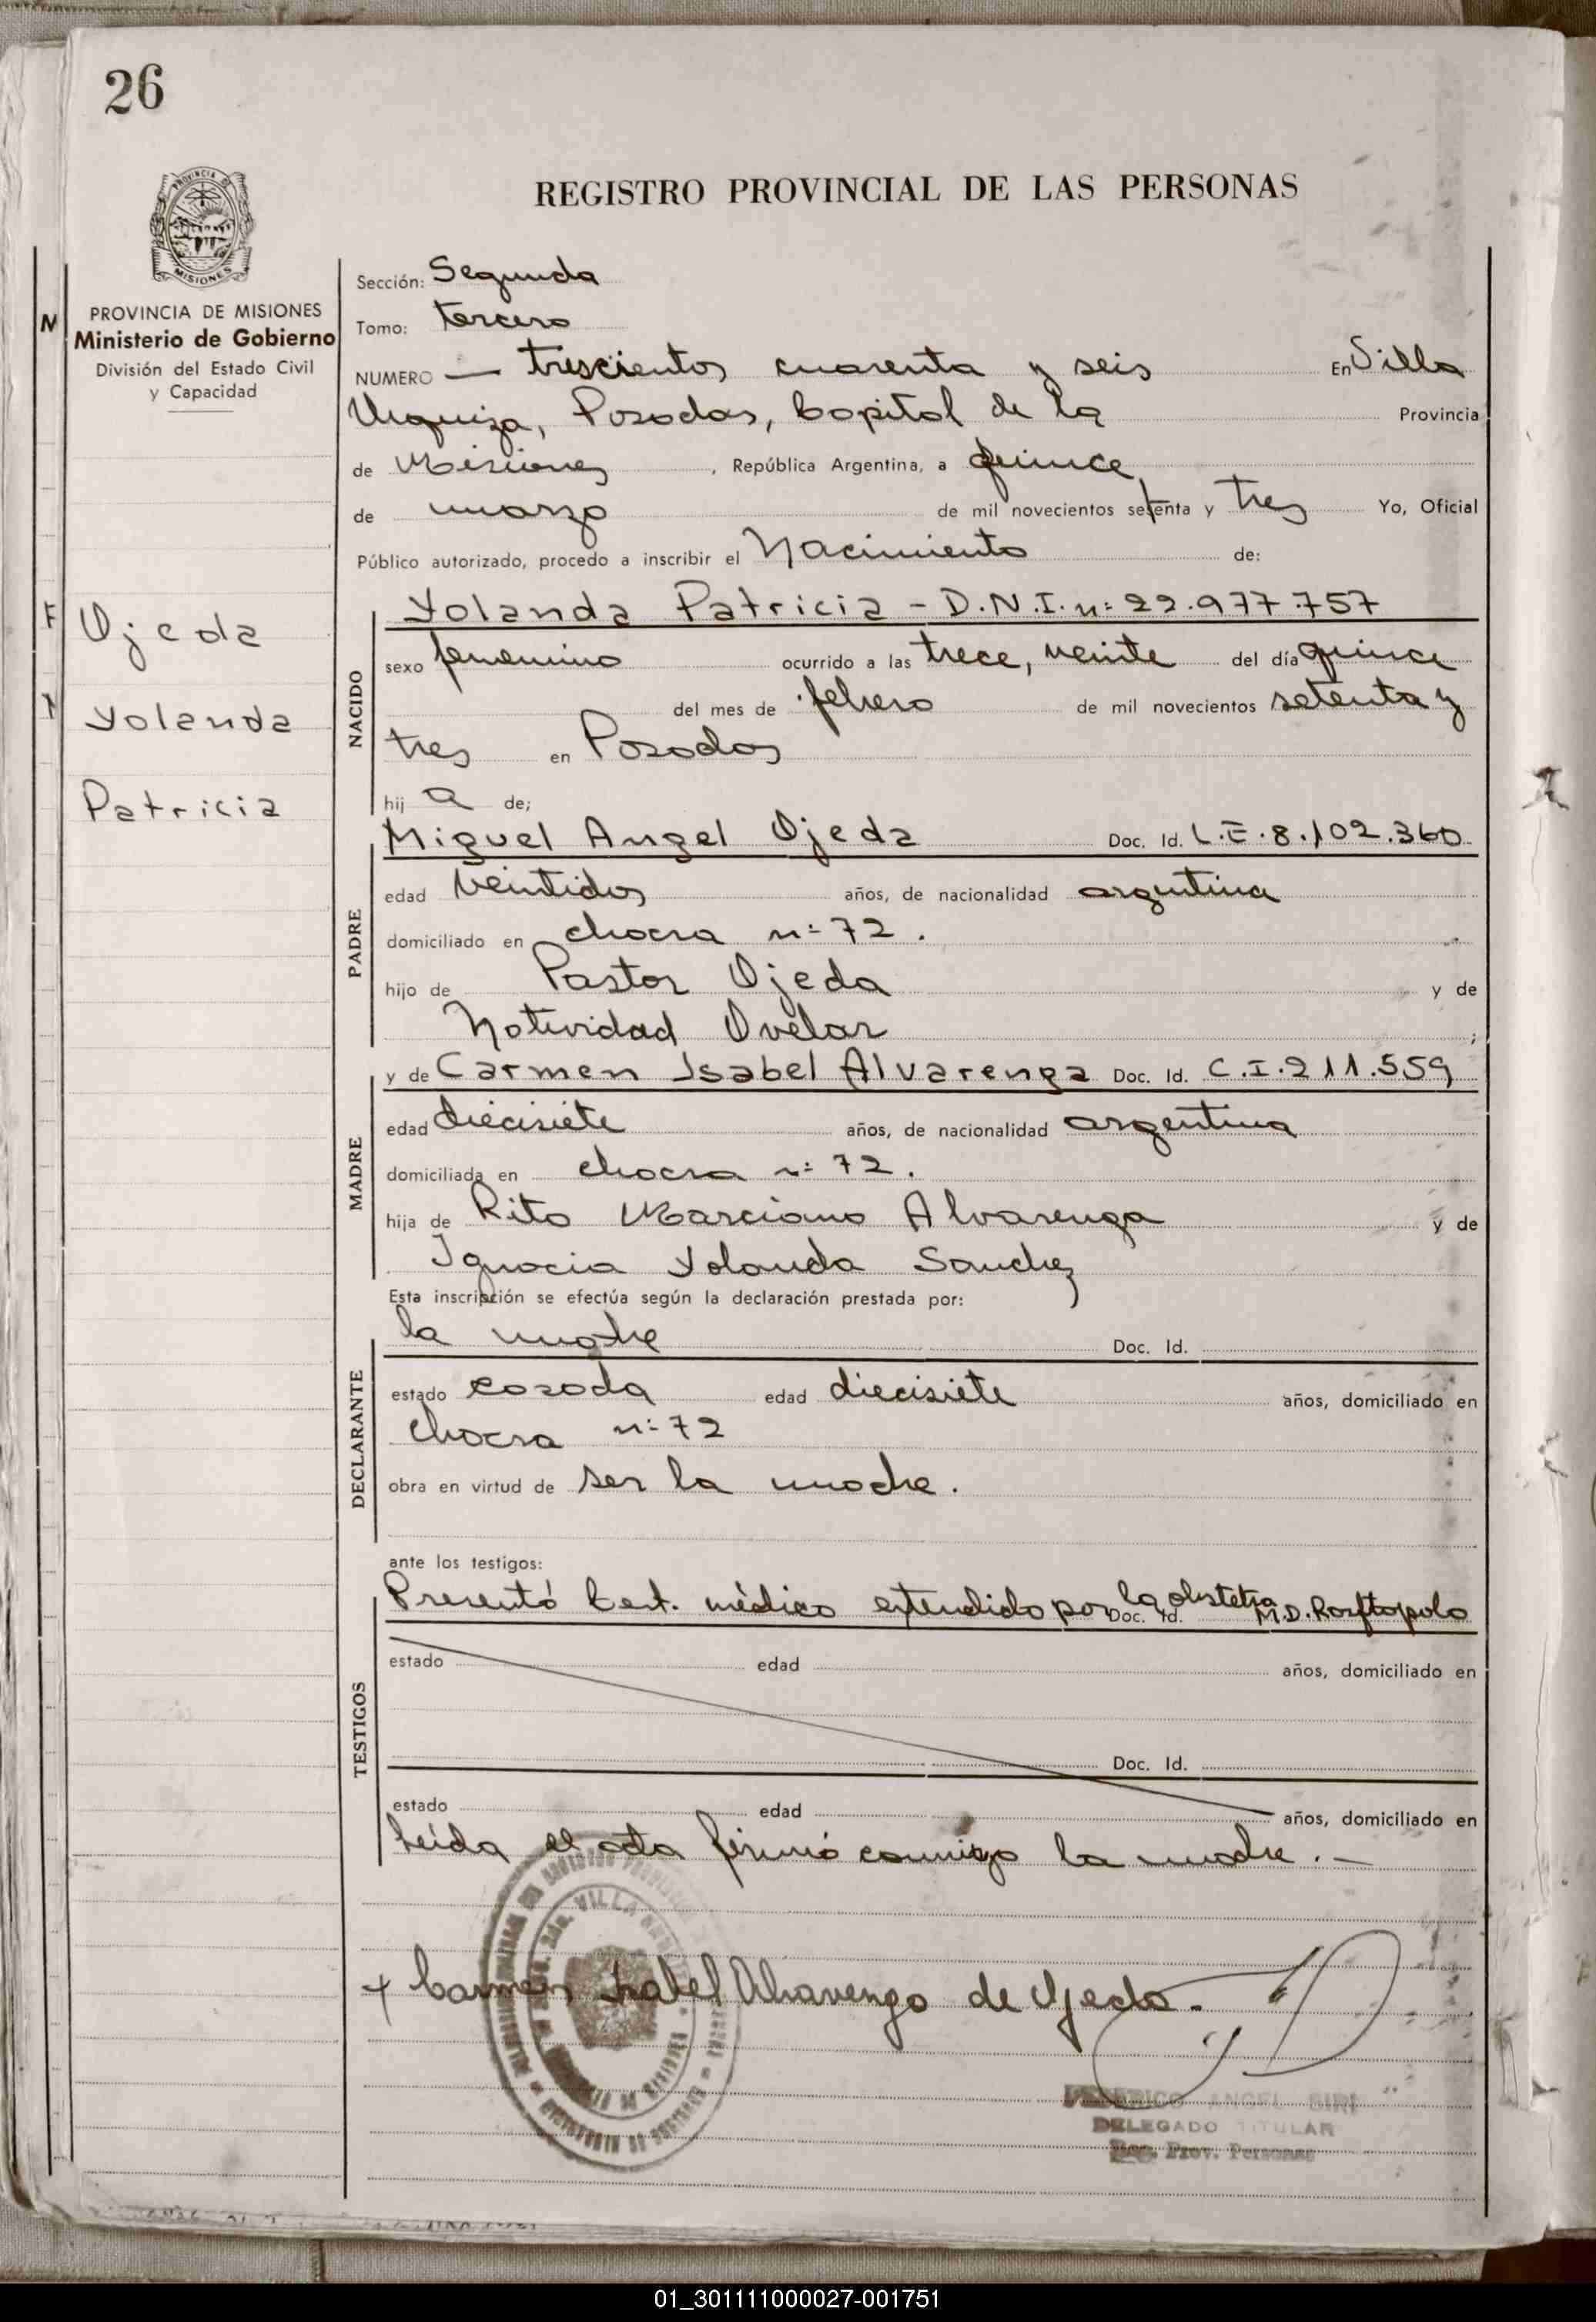 26
PROVINCIA DE
MISIONES
PROVINCIA DE MISIONES
Ministerio de Gobierno
División del Estado Civil
y Capacidad
Ojeda
Yolanda
Patricia
REGISTRO PROVINCIAL DE LAS PERSONAS
Sección: Segunda
Tomo: tercero
NUMERO — trescientos cuarenta y seis En Villa
Urquiza, Posadas, Capital de la Provincia
de Misiones, República Argentina, a quince
de marzo de mil novecientos setenta y tres Yo, Oficial
Público autorizado, procedo a inscribir el Nacimiento de:
NACIDO
Yolanda Patricia - D.N.I. nº 22.977.757
sexo femenino ocurrido a las trece, veinte del día quince
del mes de febrero de mil novecientos setenta y
tres en Posadas
hij a de;
PADRE
Miguel Angel Ojeda Doc. Id. L.E. 8.102.360
edad veintidos años, de nacionalidad argentina
domiciliado en chacra nº 72.
hijo de Pastor Ojeda y de
Natividad Ovelar ;
MADRE
y de Carmen Isabel Alvarenga Doc. Id. C.I. 211.559
edad diecisiete años, de nacionalidad argentina
domiciliada en chacra nº 72.
hija de Rito Marciano Alvarenga y de
Ignacia Yolanda Sanchez
Esta inscripción se efectúa según la declaración prestada por:
DECLARANTE
la madre Doc. Id.
estado casada edad diecisiete años, domiciliado en
chacra nº 72
obra en virtud de ser la madre.
ante los testigos:
TESTIGOS
Presentó Cert. médico extendido por la obstetra M.D. Doc. Id.
estado edad años, domiciliado en
Doc. Id.
estado edad años, domiciliado en
Leída el acta firmó conmigo la madre. —
VILLA
+ Carmen Isabel Alvarenga de Ojeda.
ANGEL
DELEGADO TITULAR
Reg. Prov. Personas
01_301111000027-001751